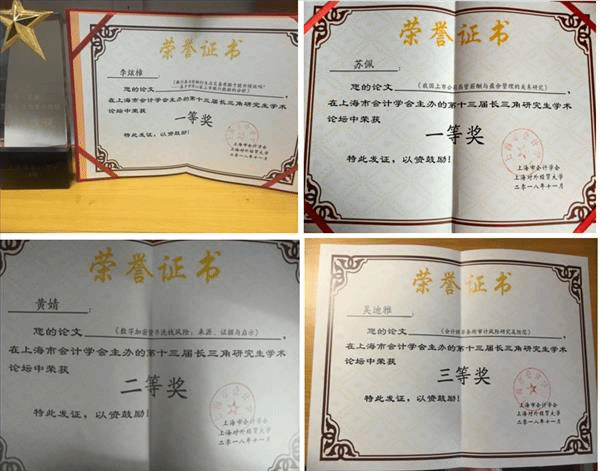 荣誉证书
李炫樟:
您的论文
在上海市会计学会主办的第十三届长三角研究生学术
论坛中荣获
一等奖
特此发证，以资鼓励!
上海市会计学会
上海对外经贸大学
二零一八年十一月
荣誉证书
苏佩:
您的论文《我国上市公司高管薪酬与盈余管理的关系研究》,
在上海市会计学会主办的第十三届长三角研究生学术
论坛中荣获
一等奖
特此发证，以资鼓励!
上海市会计学会
上海对外经贸大学
二零一八年十一月
荣誉证书
黄婧:
您的论文《数字加密货币洗钱风险：来源、证据与启示》,
在上海市会计学会主办的第十三届长三角研究生学术
论坛中荣获
二等奖
特此发证，以资鼓励!
上海市会计学会
上海对外经贸大学
二零一八年十一月
荣誉证书
吴迪雅:
您的论文《会计师事务所审计风险研究及防范》,
在上海市会计学会主办的第十三届长三角研究生学术
论坛中荣获
三等奖
特此发证，以资鼓励!
上海市会计学会
上海对外经贸大学
二零一八年十一月